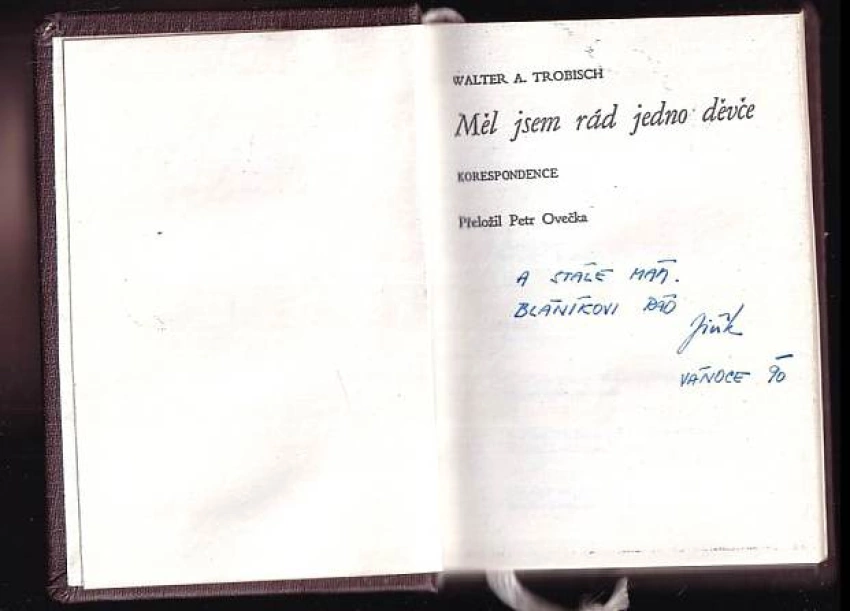 WALTER A. TROBISCH
Měl jsem rád jedno děvče
KORESPONDENCE
Přeložil Petr Ovečka
A STÁLE MÁM.
BLÁNÍKOVI RÁD
Jiřík
VÁNOCE 90